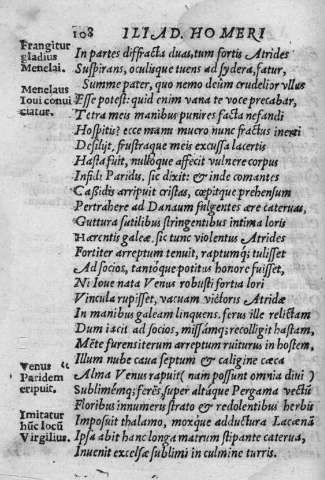 108 ILIAD. HOMERI
Frangitur
gladius
Menelai.
Menelaus
Ioui conui
ciatur.
In partes diffracta duas, tum fortis Atrides
Suspirans, oculisque tuens ad sydera, fatur,
Summe pater, quo nemo deûm crudelior vllus
Esse potest: quid enim vana te voce precabar,
Tetra meis manibus punires facta nefandi
Hospitis? ecce manu mucro nunc fractus inerti
Desilijt, frustraque meis excussa lacertis
Hasta fuit, nulloque affecit vulnere corpus
Infidi Paridis. sic dixit: & inde comantes
Cassidis arripuit cristas, cœpitque prehensum
Pertrahere ad Danaum fulgentes ære cateruas,
Guttura sutilibus stringentibus intima loris
Hærentis galeæ. sic tunc violentus Atrides
Fortiter arreptum tenuit, raptumq; tulisset
Ad socios, tantoque potitus honore fuisset,
Ni Ioue nata Venus robusti fortia lori
Vincula rupisset, vacuam victoris Atridæ
In manibus galeam linquens. ferus ille relictam
Dum iacit ad socios, missámq; recolligit hastam,
Mēte furens iterum arreptum ruiturus in hostem,
Illum nube caua septum & caligine cæca
Venus
Paridem
eripuit.
Alma Venus rapuit (nam possunt omnia diui)
Sublimémq; ferēs, super altáque Pergama vectū
Floribus innumeris strato & redolentibus herbis
Imitatur
hūc locū
Virgilius.
Imposuit thalamo, moxque adductura Lacænā
Ipsa abit hanc longa matrum stipante caterua,
Inuenit excelsæ sublimi in culmine turris.